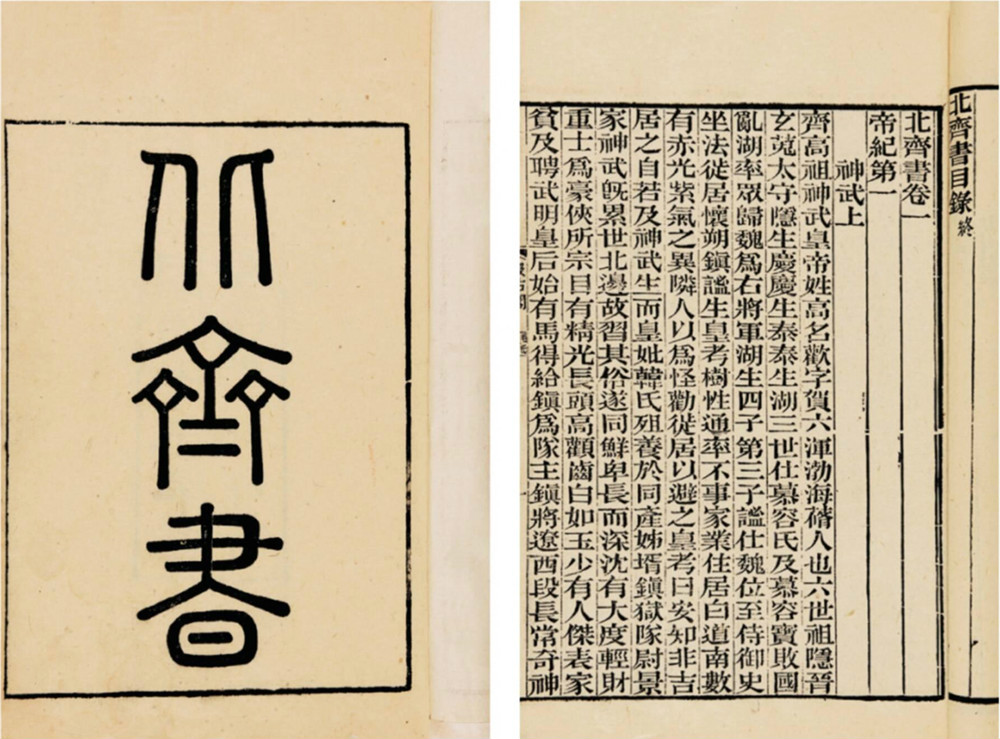 北齊書
北齊書目錄 終
北齊書卷一
帝紀第一
神武上
齊高祖神武皇帝姓高名歡字賀六渾渤海蓨人也六世祖隱晉
玄菟太守隱生慶慶生泰泰生湖三世仕慕容氏及慕容寶敗國
亂湖率眾歸魏爲右將軍湖生四子第三子謐仕魏位至侍御史
坐法徙居懷朔鎮謐生皇考樹性通率不事家業住居白道南數
有赤光紫氣之異隣人以爲怪勸徙居以避之皇考曰安知非吉
居之自若及神武生而皇妣韓氏殂養於同產姊壻鎮獄隊尉景
家神武旣累世北邊故習其俗遂同鮮卑長而深沈有大度輕財
重士爲豪俠所宗目有精光長頭高顴齒白如玉少有人傑表家
貧及聘武明皇后始有馬得給鎮爲隊主鎮將遼西段長常奇神